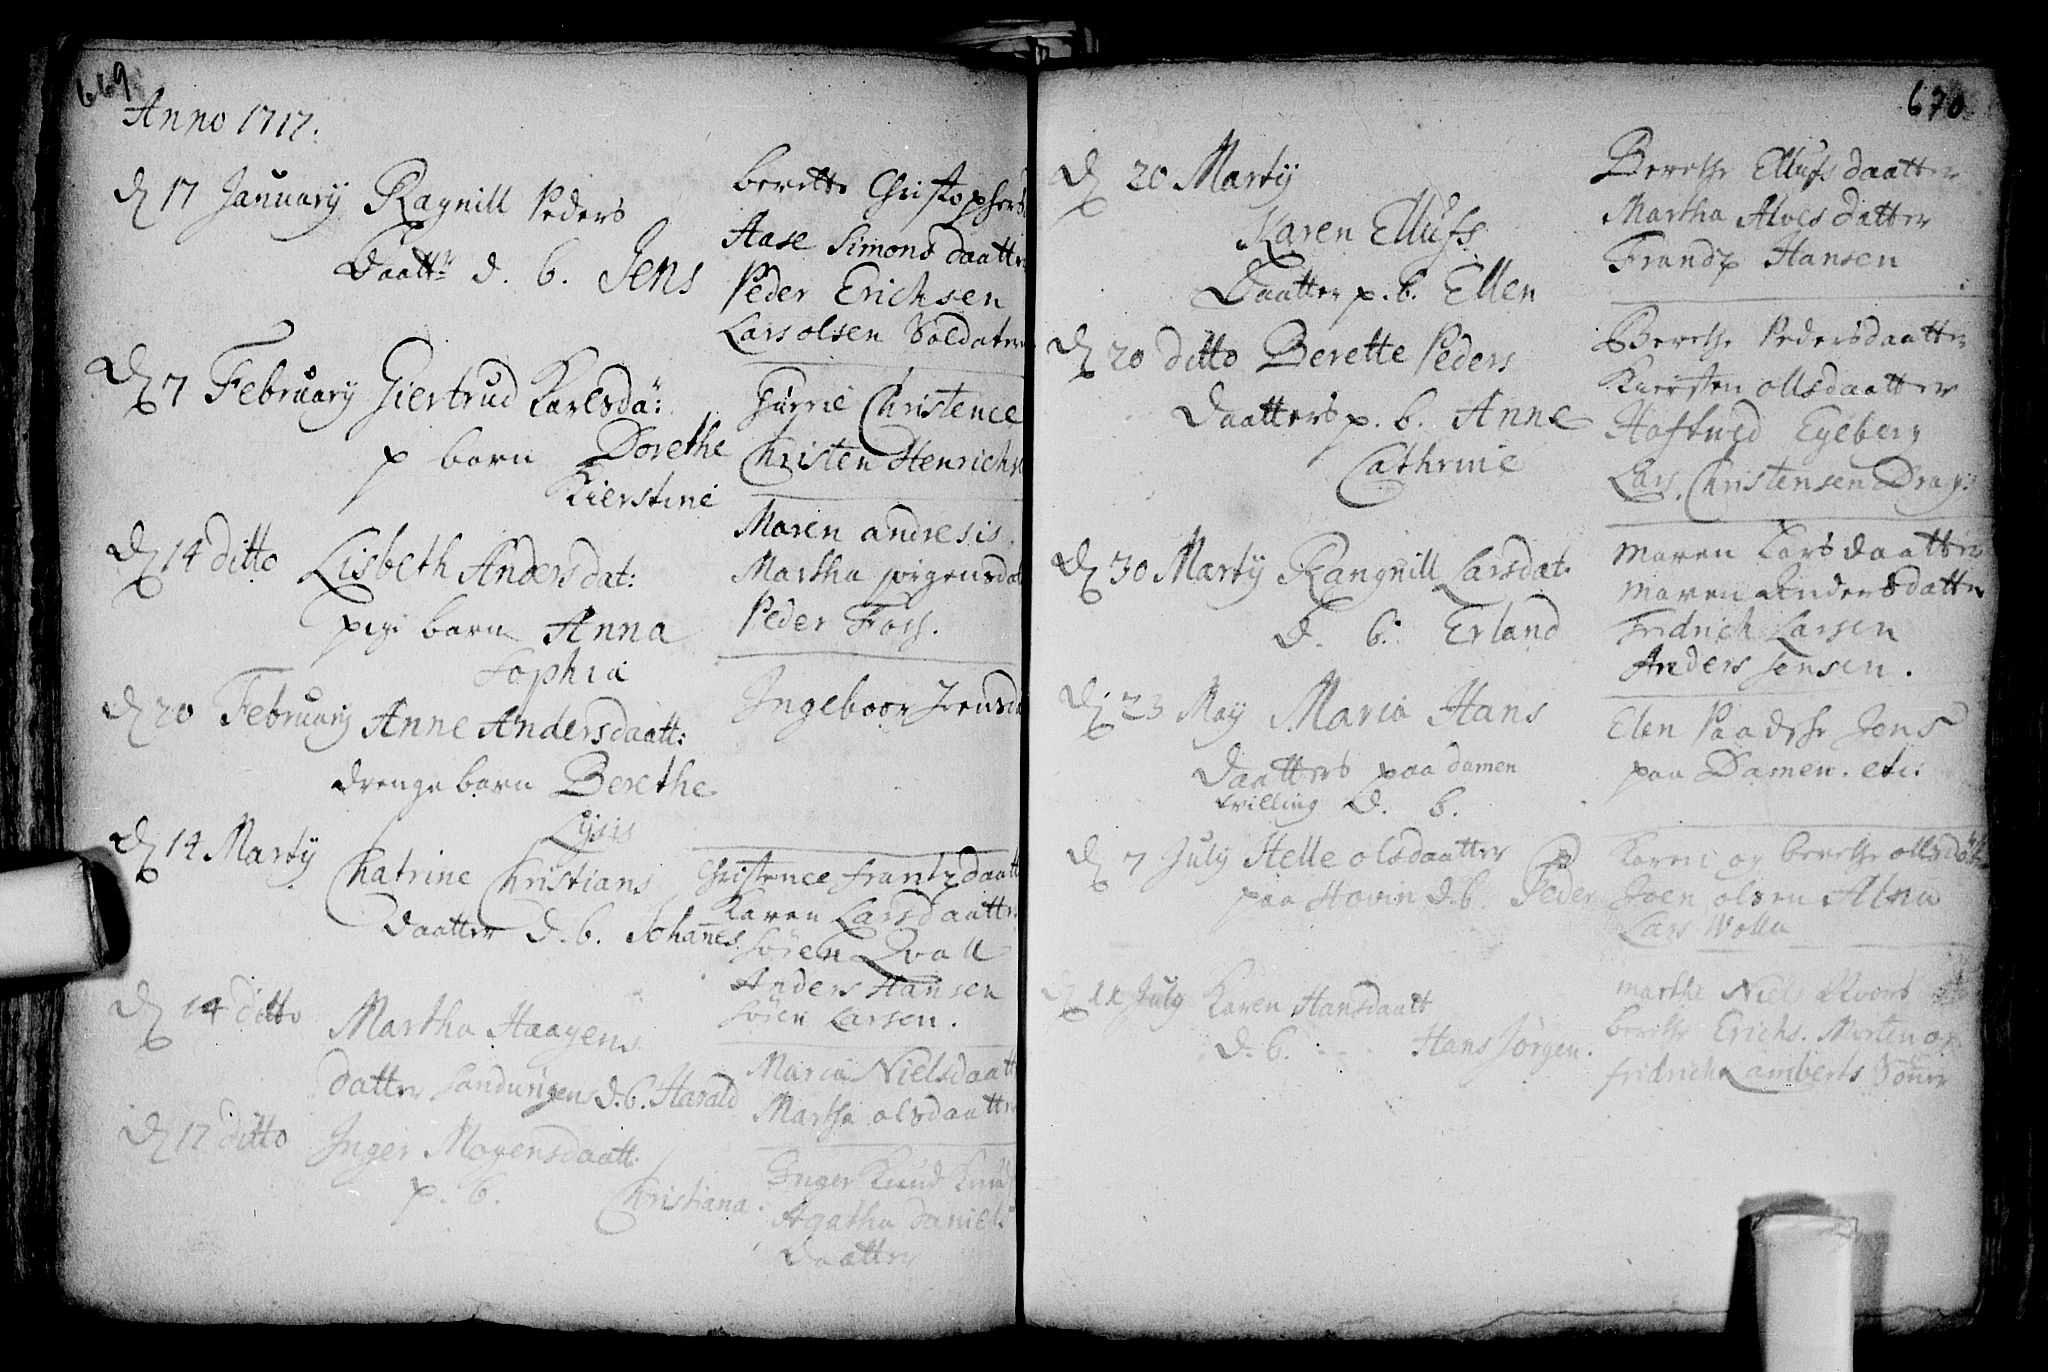 669
Anno 1717.
D 17 January Ragnill Peders
Daattr d. b. Jens
berette Christophers
Aase Simons daatter
Peder Erichsen
Lars olsen Soldater
D 7 February Giertrud Karlsdä:
p barn Dorethe
Kierstine
Christence
Christen Henrichs
D 14 ditto Lisbeth Anders dat:
pigi barn Anna
Sophia
Maren andresis
Martha jörgensdat
Peder Foss.
D 20 February Anne Andersdaatt:
drenge barn Berethe
Lysis
Ingeboor Jensda
D 14 Martij
Chatrine Christians
daatter d. b. Johannes
Christence frantzdaatt
Karen Larsdaatter
Sören Qvall
Anders Hansen
Sören Larsen.
D 14 ditto
Martha Haagens
datter sandungen d. b. Harald
Maria Nielsdaatt
Marthe olsdaatter
D 17 ditto Inger Mogensdaatt.
p. b. Christiana.
Inger Knud
Agatha Daniels
Daatter
670
D 20 Martij
Karen Ellufs
Daatter p. b. Ellen
Berethe Ellufs daatter
Martha Alvesdatter
Frandz Hansen
D 20 ditto Berette Peders
Daatters p. b. Anne
Cathrine
Berethe Pedersdaatter
Kiersten ollsdaatter
Egeberg
Lars Christensen Drag:
D 30 Martij Rangnill Larsdat.
d. b. Erland
Maren Larsdaatter
Maren Andersdatter
Fridrich Larsen
Anders Jensen.
D 23 May Maria Hans
Daatters paa damen
tvilling d. b.
Elen Jens
paa Damen. etc:
D 7 July Helle olsdaatter
paa Hovin d. b. Peder
Karen og berethe ollsdött
Joen olsen Alna
Lars Wolla
D 11 July Karen Hansdaatt
d. b. Hans Jörgen.
marthe Niels
berethe Erichs. Morten og
fridrich Lamberts Sönner